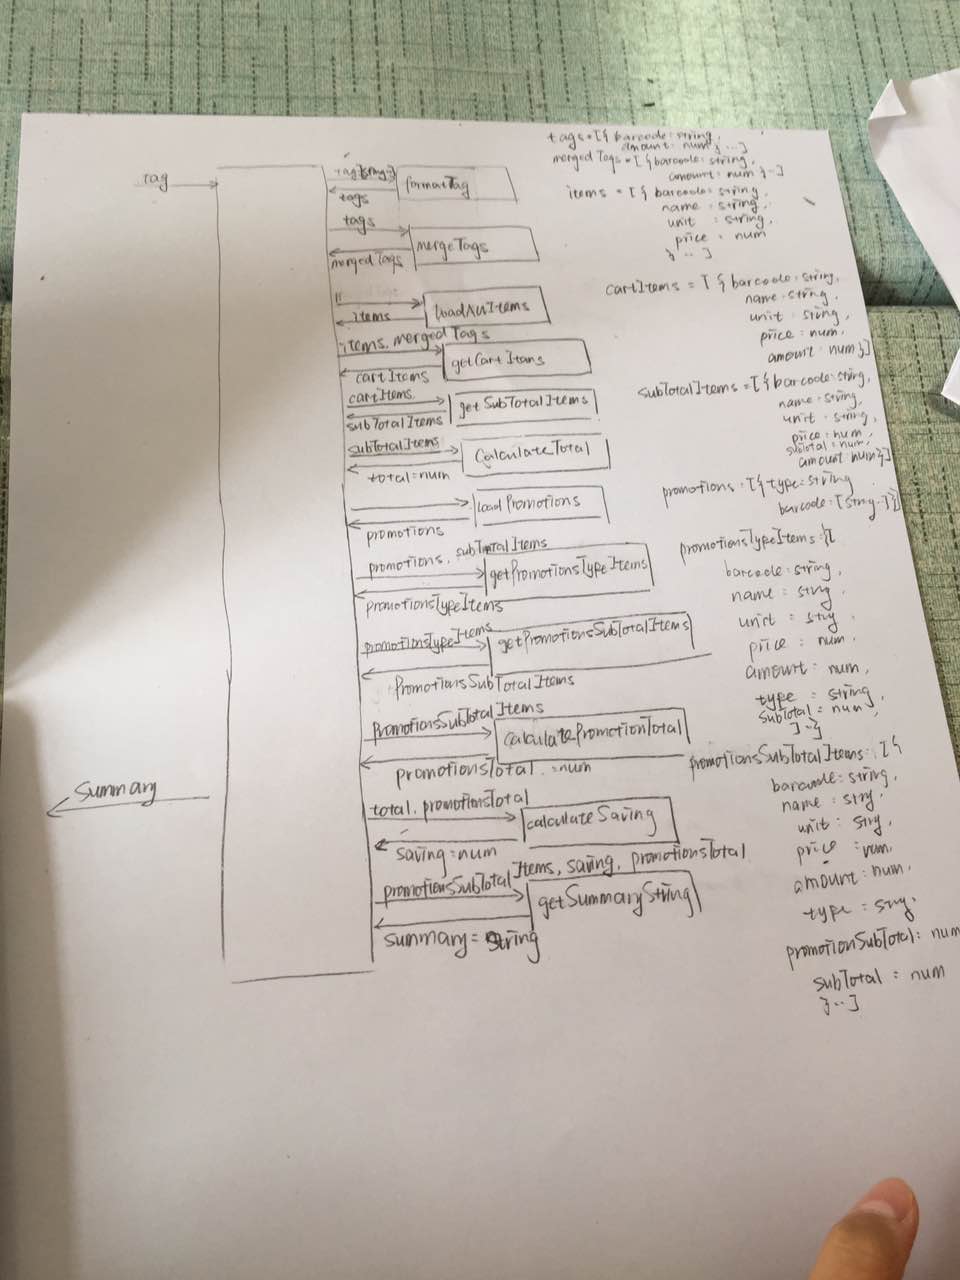 tag
formatTag
tags
tags
mergeTags
mergedTags
loadAllItems
items
items, mergedTags
getCartItams
cartItems
cartItems
getSubTotalItems
subTotalItems
subTotalItems
CalculateTotal
total=num
loadPromotions
promotions
promotions, subTotalItems
getPromotionsTypeItems
promotionsTypeItems
promotionsTypeItems
getPromotionsSubTotalItems
PromotionsSubTotalItems
PromotionsSubTotalItems
CalculatePromotionTotal
promotionsTotal =num
Summary
total, promotionsTotal
calculateSaving
saving=num
promotionsSubTotalItems, saving, promotionsTotal
getSummaryString
summary= string
tags=[{barcode:string,
amount: num}...]
merged Tags=[{barcode: string,
amount: num}..]
items = [{barcode: string,
name: string,
unit : string,
price : num
}...]
cartItems = [{barcode: string,
name: string,
unit: string,
price: num,
amount: num}]
subTotalItems=[{barcode: string,
name: string,
unit: string,
price: num,
subtotal: num,
amount: num}]
promotions: [{type: string
barcode: [string..]}]
promotionsTypeItems: [{
barcode: string,
name : string,
unit : strng,
price : num,
amount: num,
type : string,
subtotal : num,
}..]
promotionsSubTotalItems: [{
barcode: string,
name : strng,
unit : strng,
price : num,
amount: num,
type : strng,
promotionSubTotal: num
subTotal : num
}...]